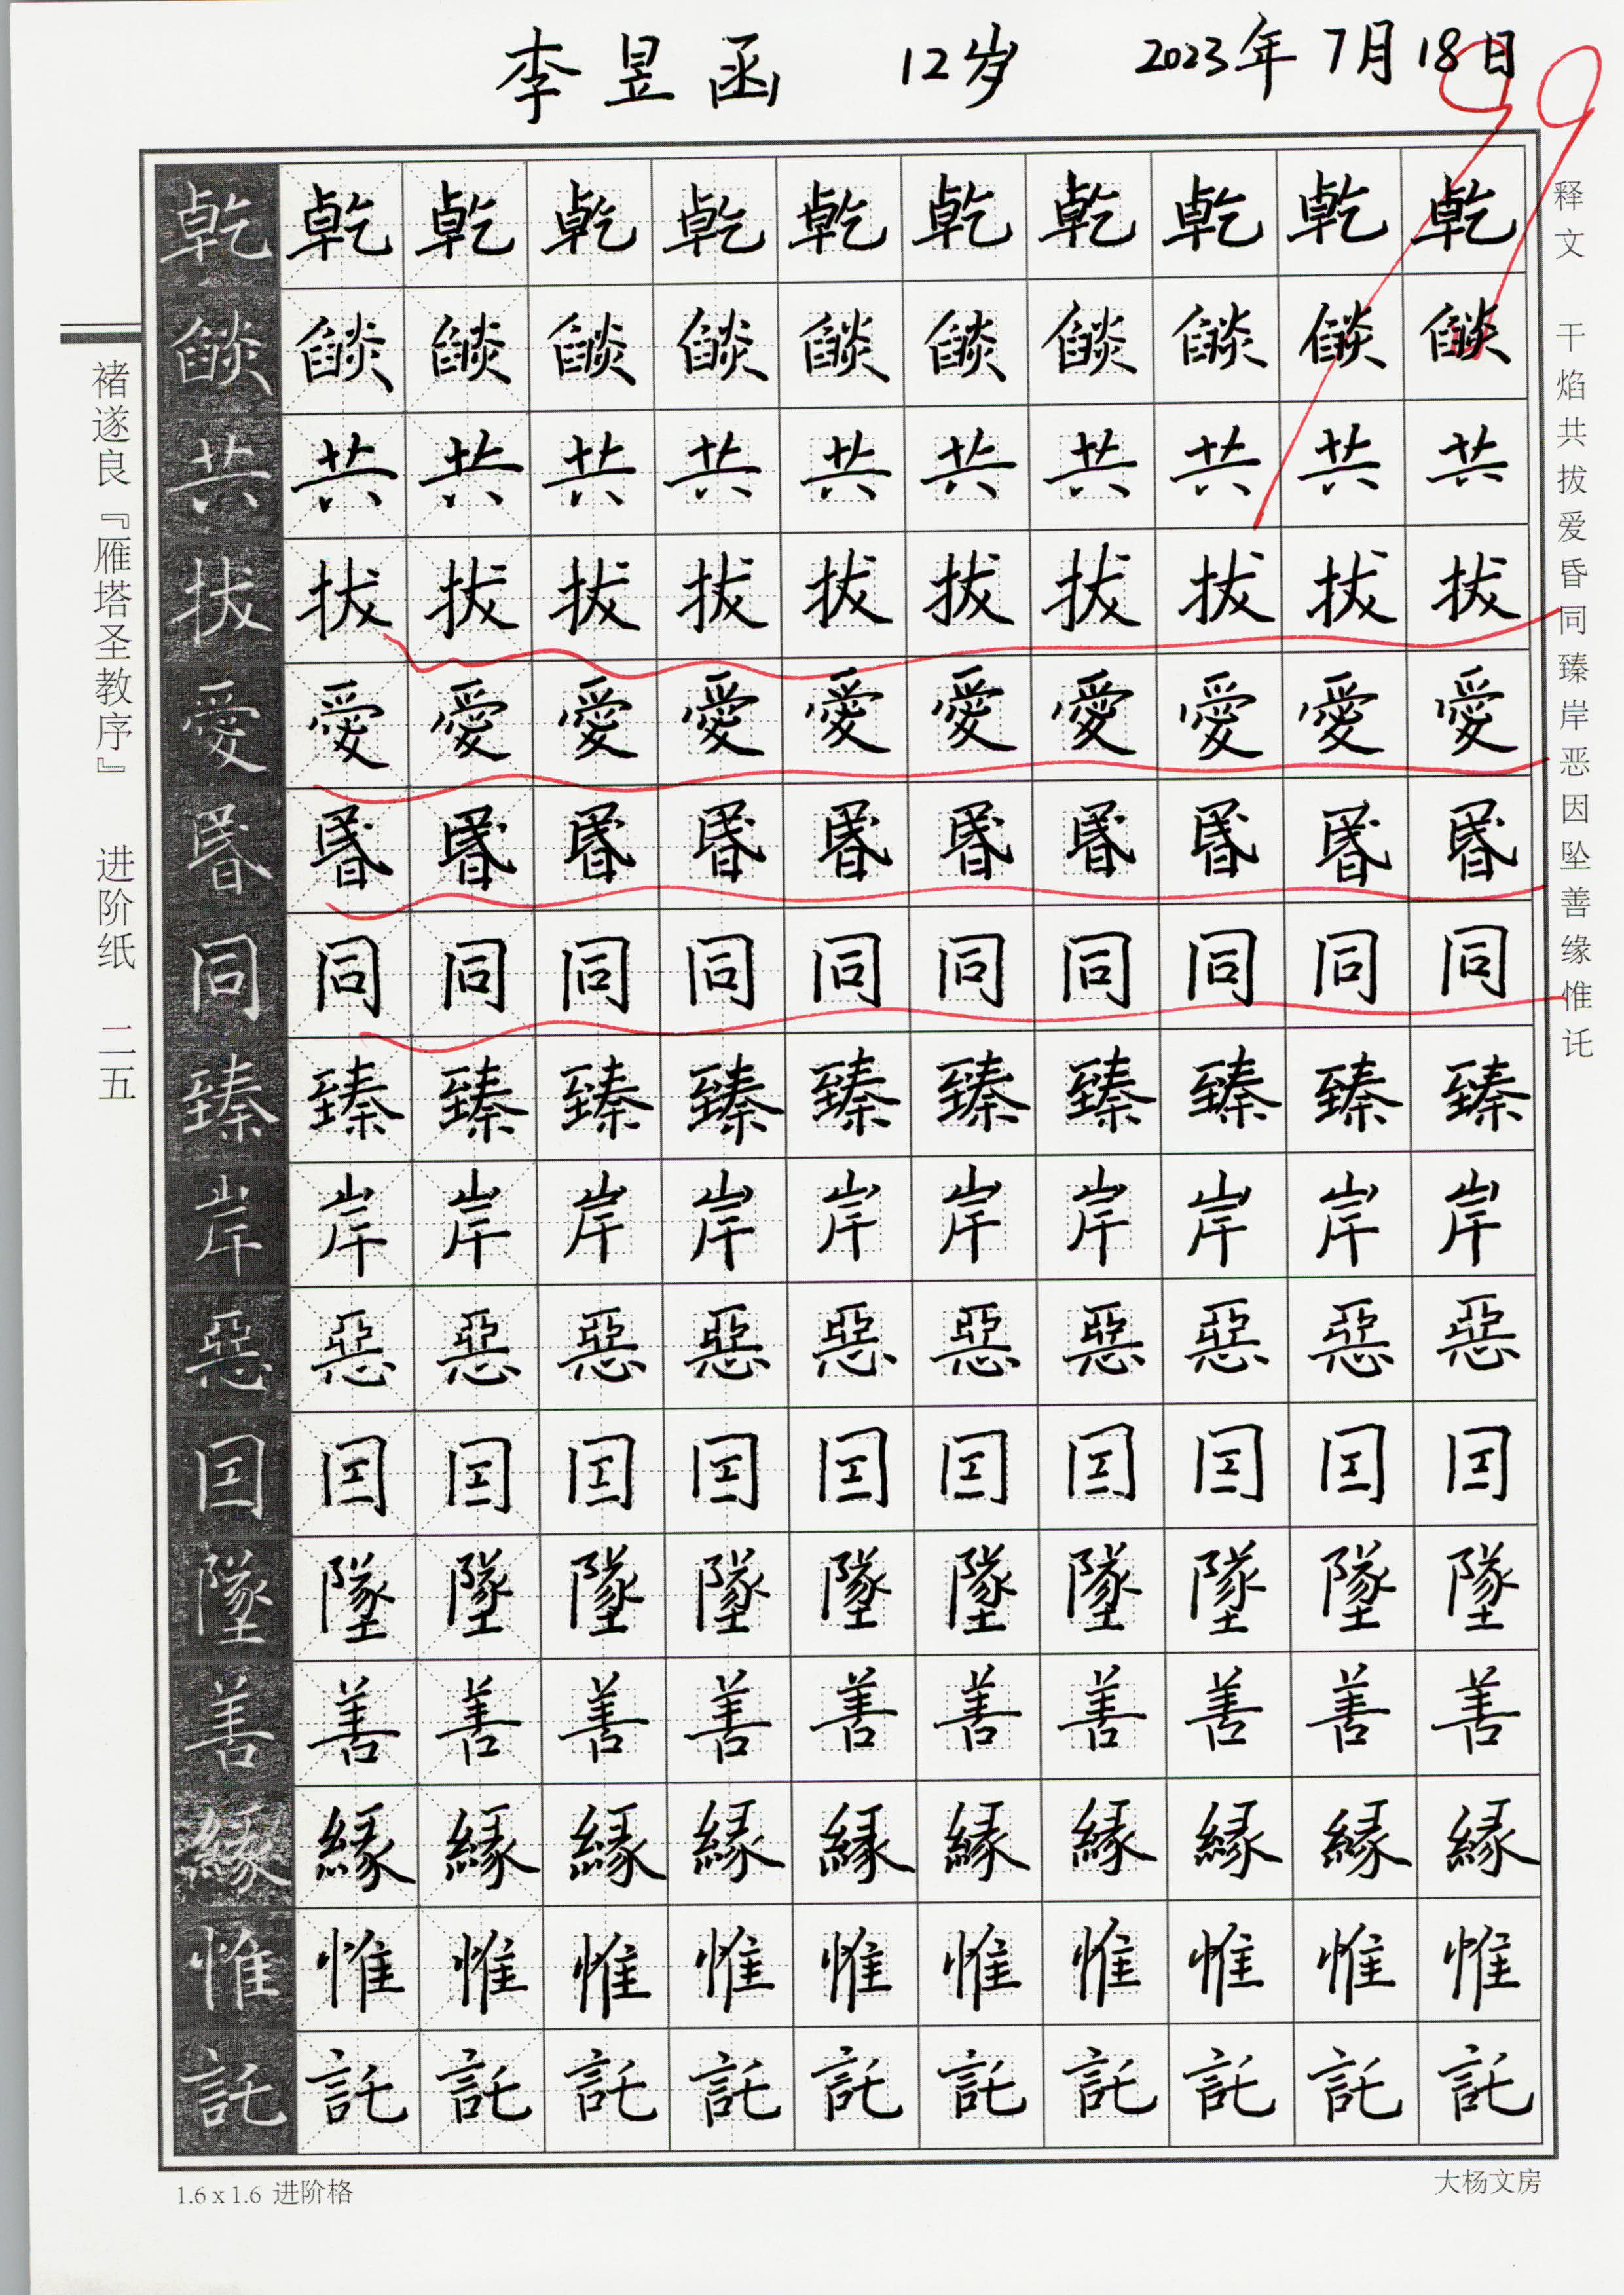 李昱函 12岁 2023年7月18日
99
乾乾乾乾乾乾乾乾乾乾乾
燄燄燄燄燄燄燄燄燄燄燄
共共共共共共共共共共共
拔拔拔拔拔拔拔拔拔拔拔
愛愛愛愛愛愛愛愛愛愛愛
昬昬昬昬昬昬昬昬昬昬昬
同同同同同同同同同同同
臻臻臻臻臻臻臻臻臻臻臻
岸岸岸岸岸岸岸岸岸岸岸
惡惡惡惡惡惡惡惡惡惡惡
囙囙囙囙囙囙囙囙囙囙囙
墜墜墜墜墜墜墜墜墜墜墜
善善善善善善善善善善善
緣緣緣緣緣緣緣緣緣緣緣
惟惟惟惟惟惟惟惟惟惟惟
託託託託託託託託託託託
释文 干焰共拔爱昏同臻岸恶因坠善缘惟讬
褚遂良『雁塔圣教序』 进阶纸 二五
1.6 x 1.6 进阶格
大杨文房